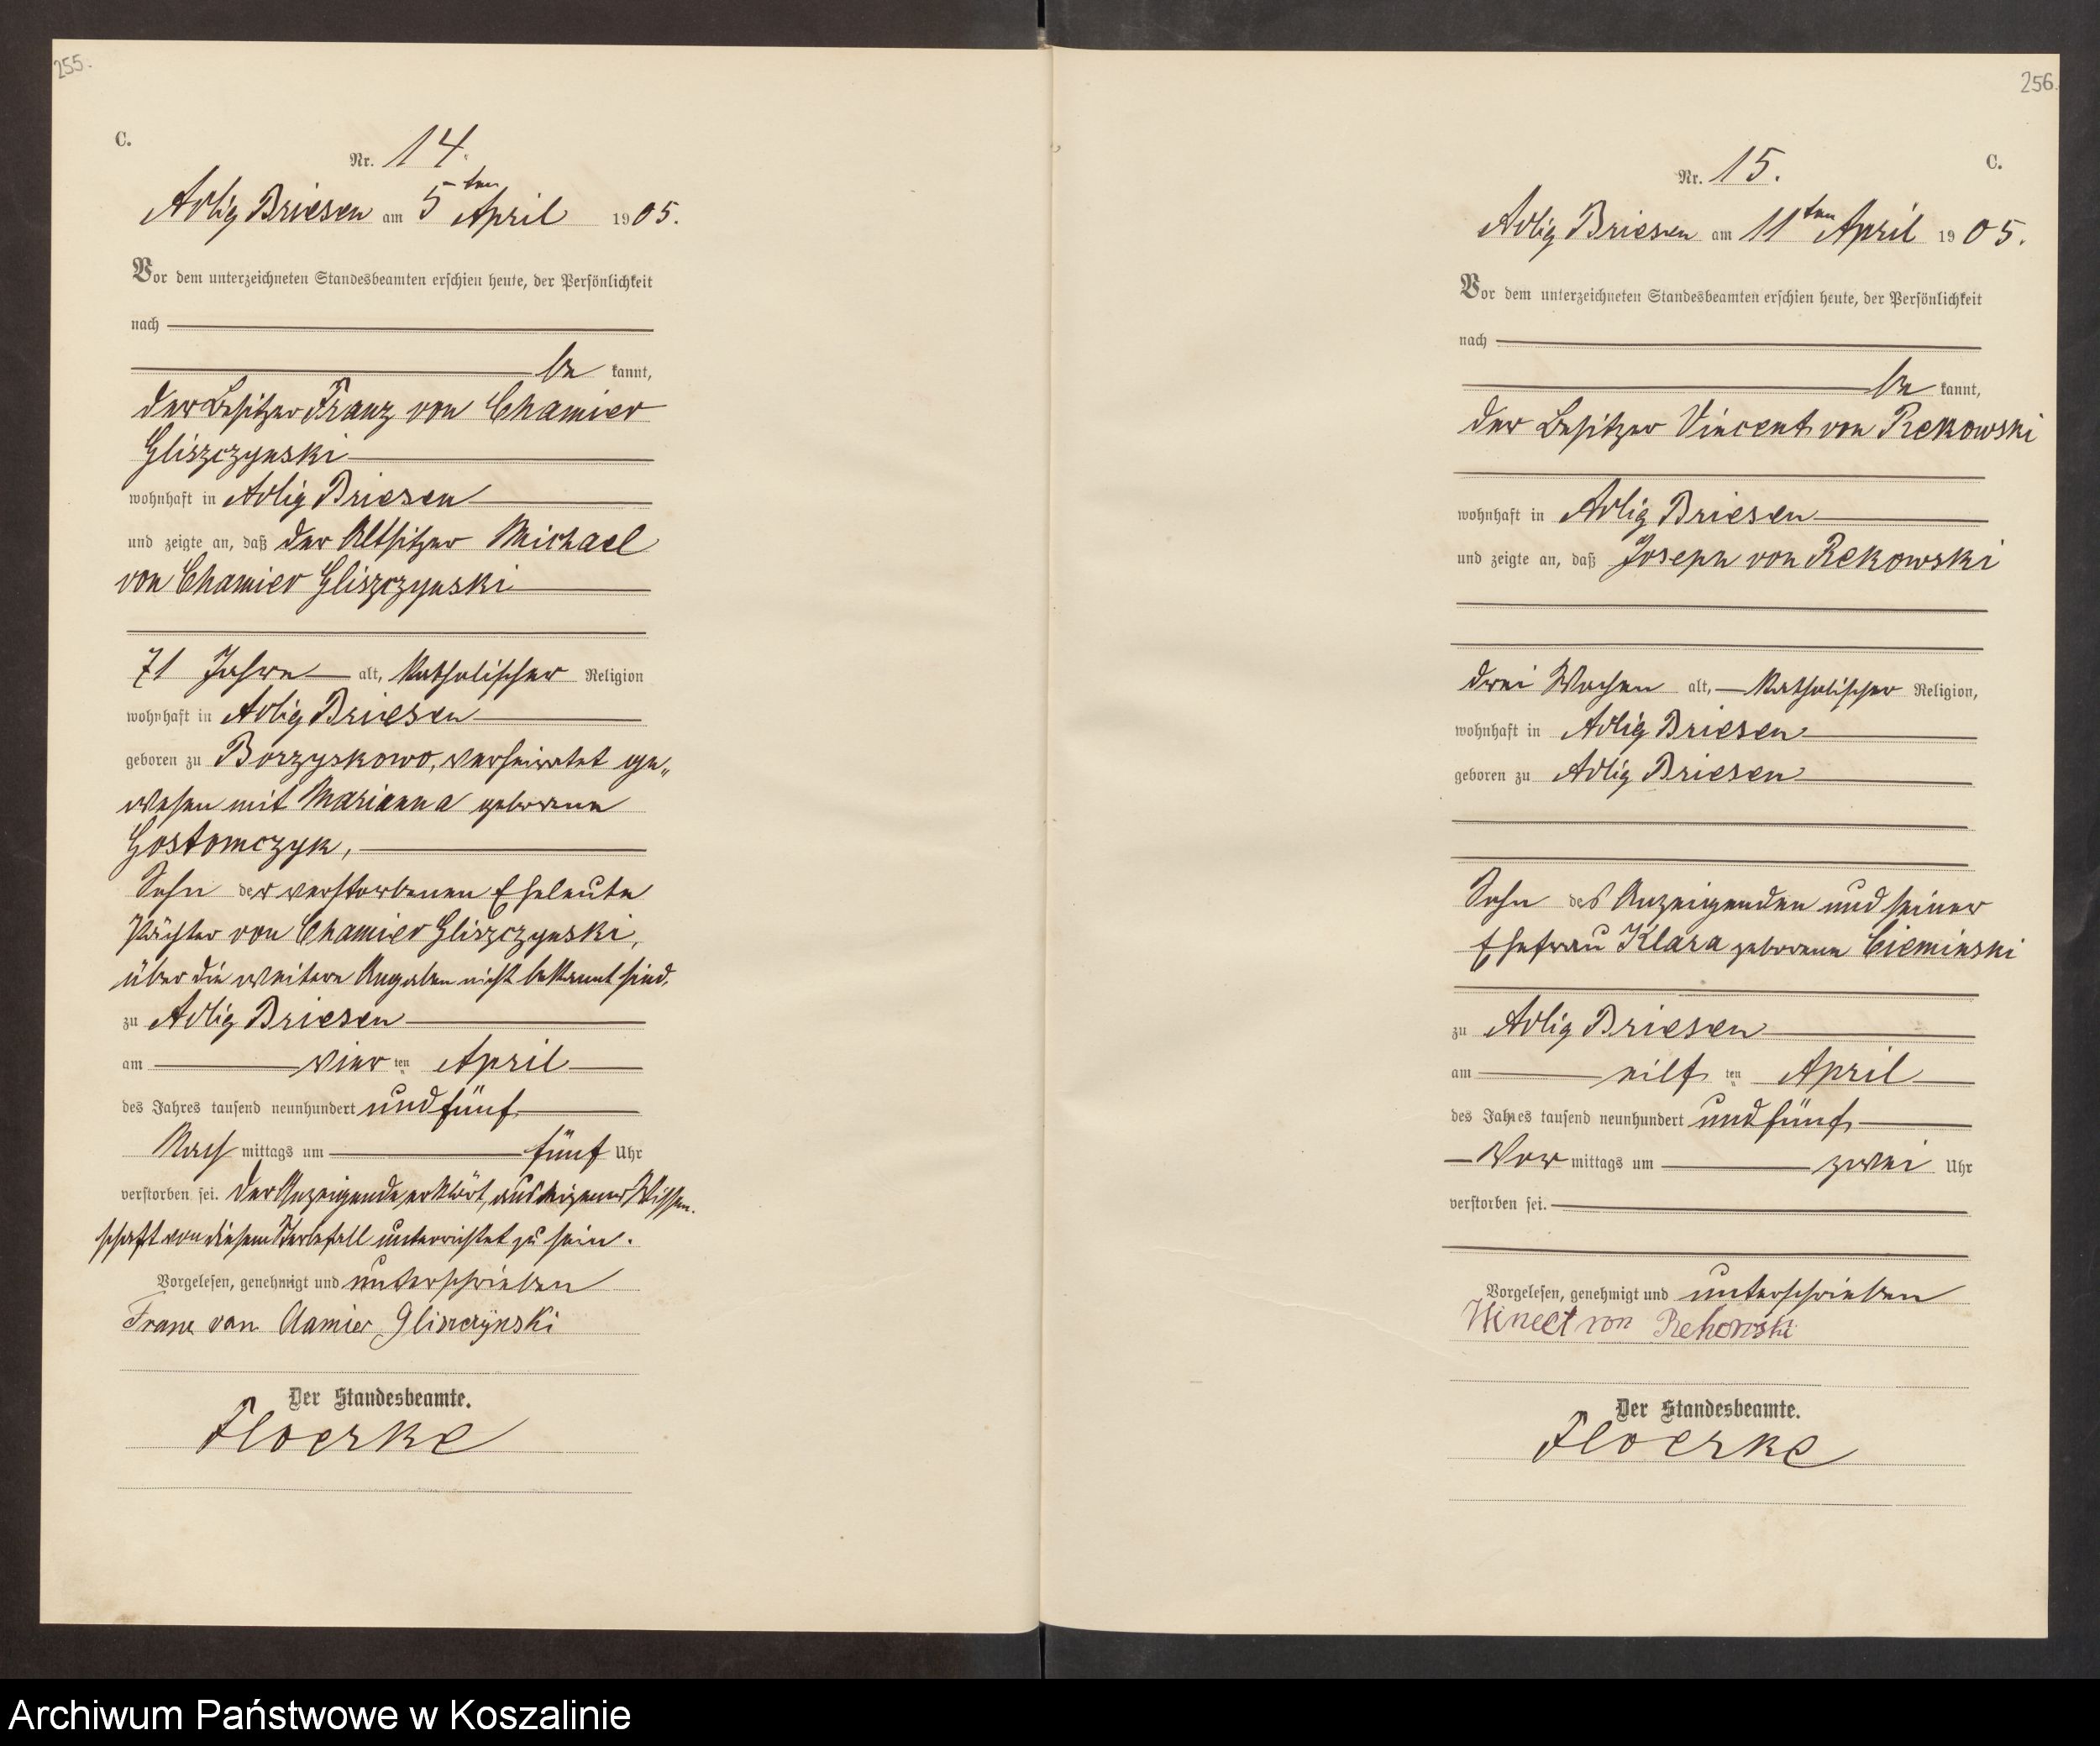 255.
C.
Nr. 14.
Adlig Briesen am 5ten April 1905.
Vor dem unterzeichneten Standesbeamten erschien heute, der Persönlichkeit
nach
be kannt,
der Besitzer Franz von Chamier
Gliszczynski
wohnhaft in Adlig Briesen
und zeigte an, daß der Altsitzer Michael
von Chamier Gliszczynski
71 Jahre alt, katholischer Religion
wohnhaft in Adlig Briesen
geboren zu Borzyskowo, verheirathet ge„
wesen mit Marianna geborene
Gostomczyk,
Sohn der verstorbenen Eheleute
Pächter von Chamier Gliszczynski,
über die weitere Angaben nicht bekannt sind,
zu Adlig Briesen
am vier ten April
des Jahres tausend neunhundert und fünf
Nach mittags um fünf Uhr
verstorben sei. Der Anzeigende erklärt, aus eigener Wissen-
schaft von diesem Sterbefall unterrichtet zu sein.
Vorgelesen, genehmigt und unterschrieben
Franz von Camier Gliszczynski
Der Standesbeamte.
Floerke
256.
C.
Nr. 15.
Adlig Briesen am 11ten April 1905.
Vor dem unterzeichneten Standesbeamten erschien heute, der Persönlichkeit
nach
be kannt,
der Besitzer Vincent von Rekowski
wohnhaft in Adlig Briesen
und zeigte an, daß Joseph von Rekowski
drei Wochen alt, katholischer Religion,
wohnhaft in Adlig Briesen
geboren zu Adlig Briesen
Sohn des Anzeigenden und seiner
Ehefrau Klara geborene Cieminski
zu Adlig Briesen
am eilf ten April
des Jahres tausend neunhundert und fünf
Vor mittags um zwei Uhr
verstorben sei.
Vorgelesen, genehmigt und unterschrieben
von Rekowski
Der Standesbeamte.
Floerke
Archiwum Państwowe w Koszalinie